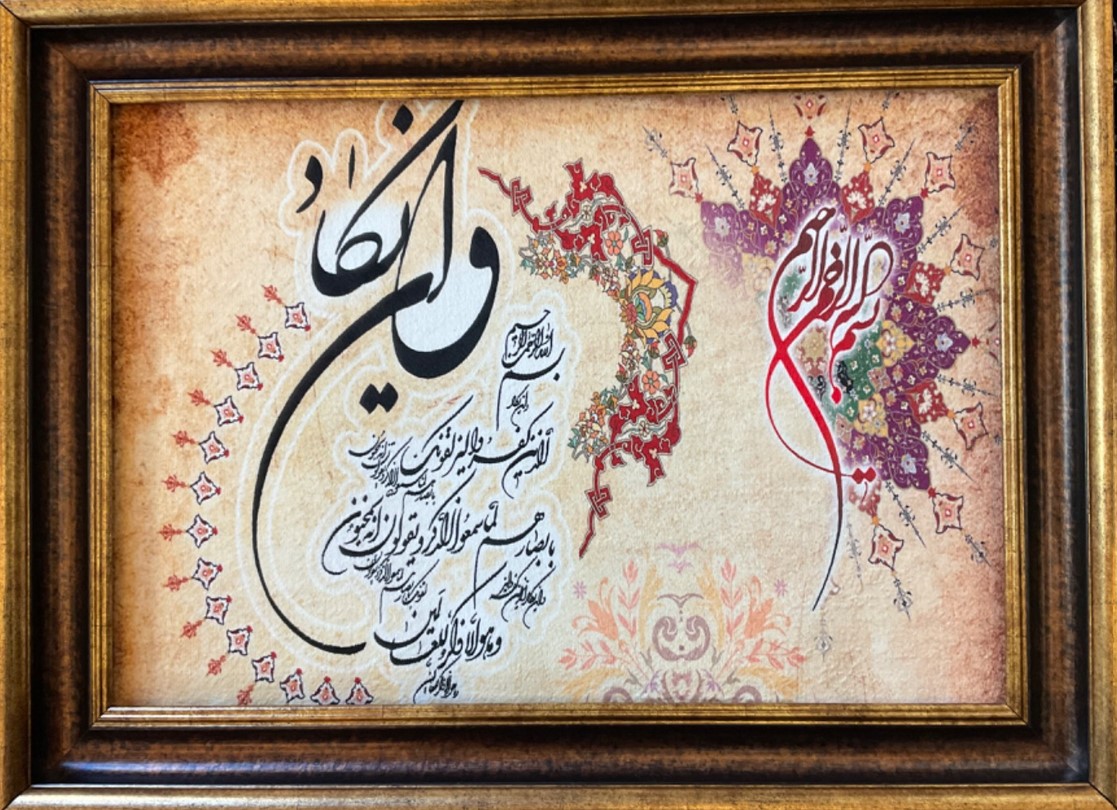 بسم الله الرحمن الرحیم
وان یکاد
بسم الله الرحمن الرحیم
وان یکاد
الذین کفروا لیزلقونک
بابصارهم لما سمعوا الذکر و یقولون انه لمجنون
و ما هو الا ذکر للعالمین